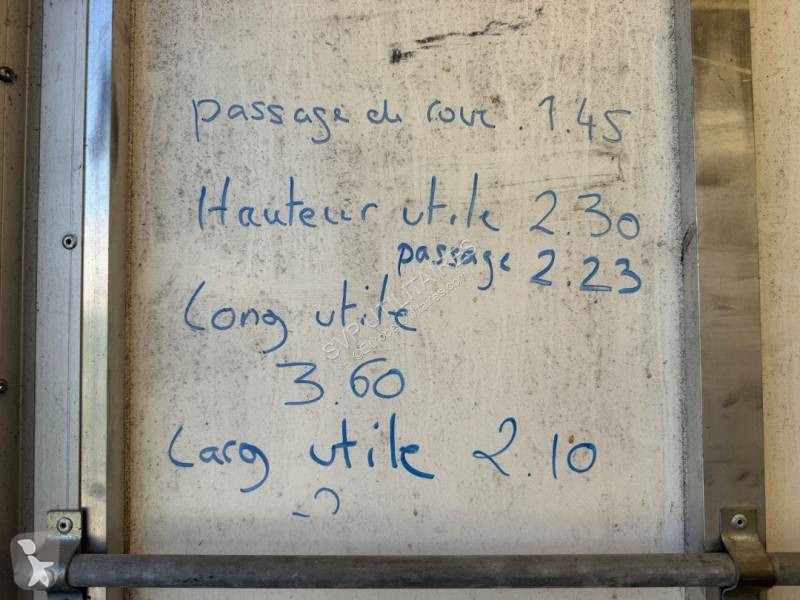 passage de roue. 1.45
Hauteur utile 2.30
passage 2.23
Long utile
3.60
Larg utile 2.10